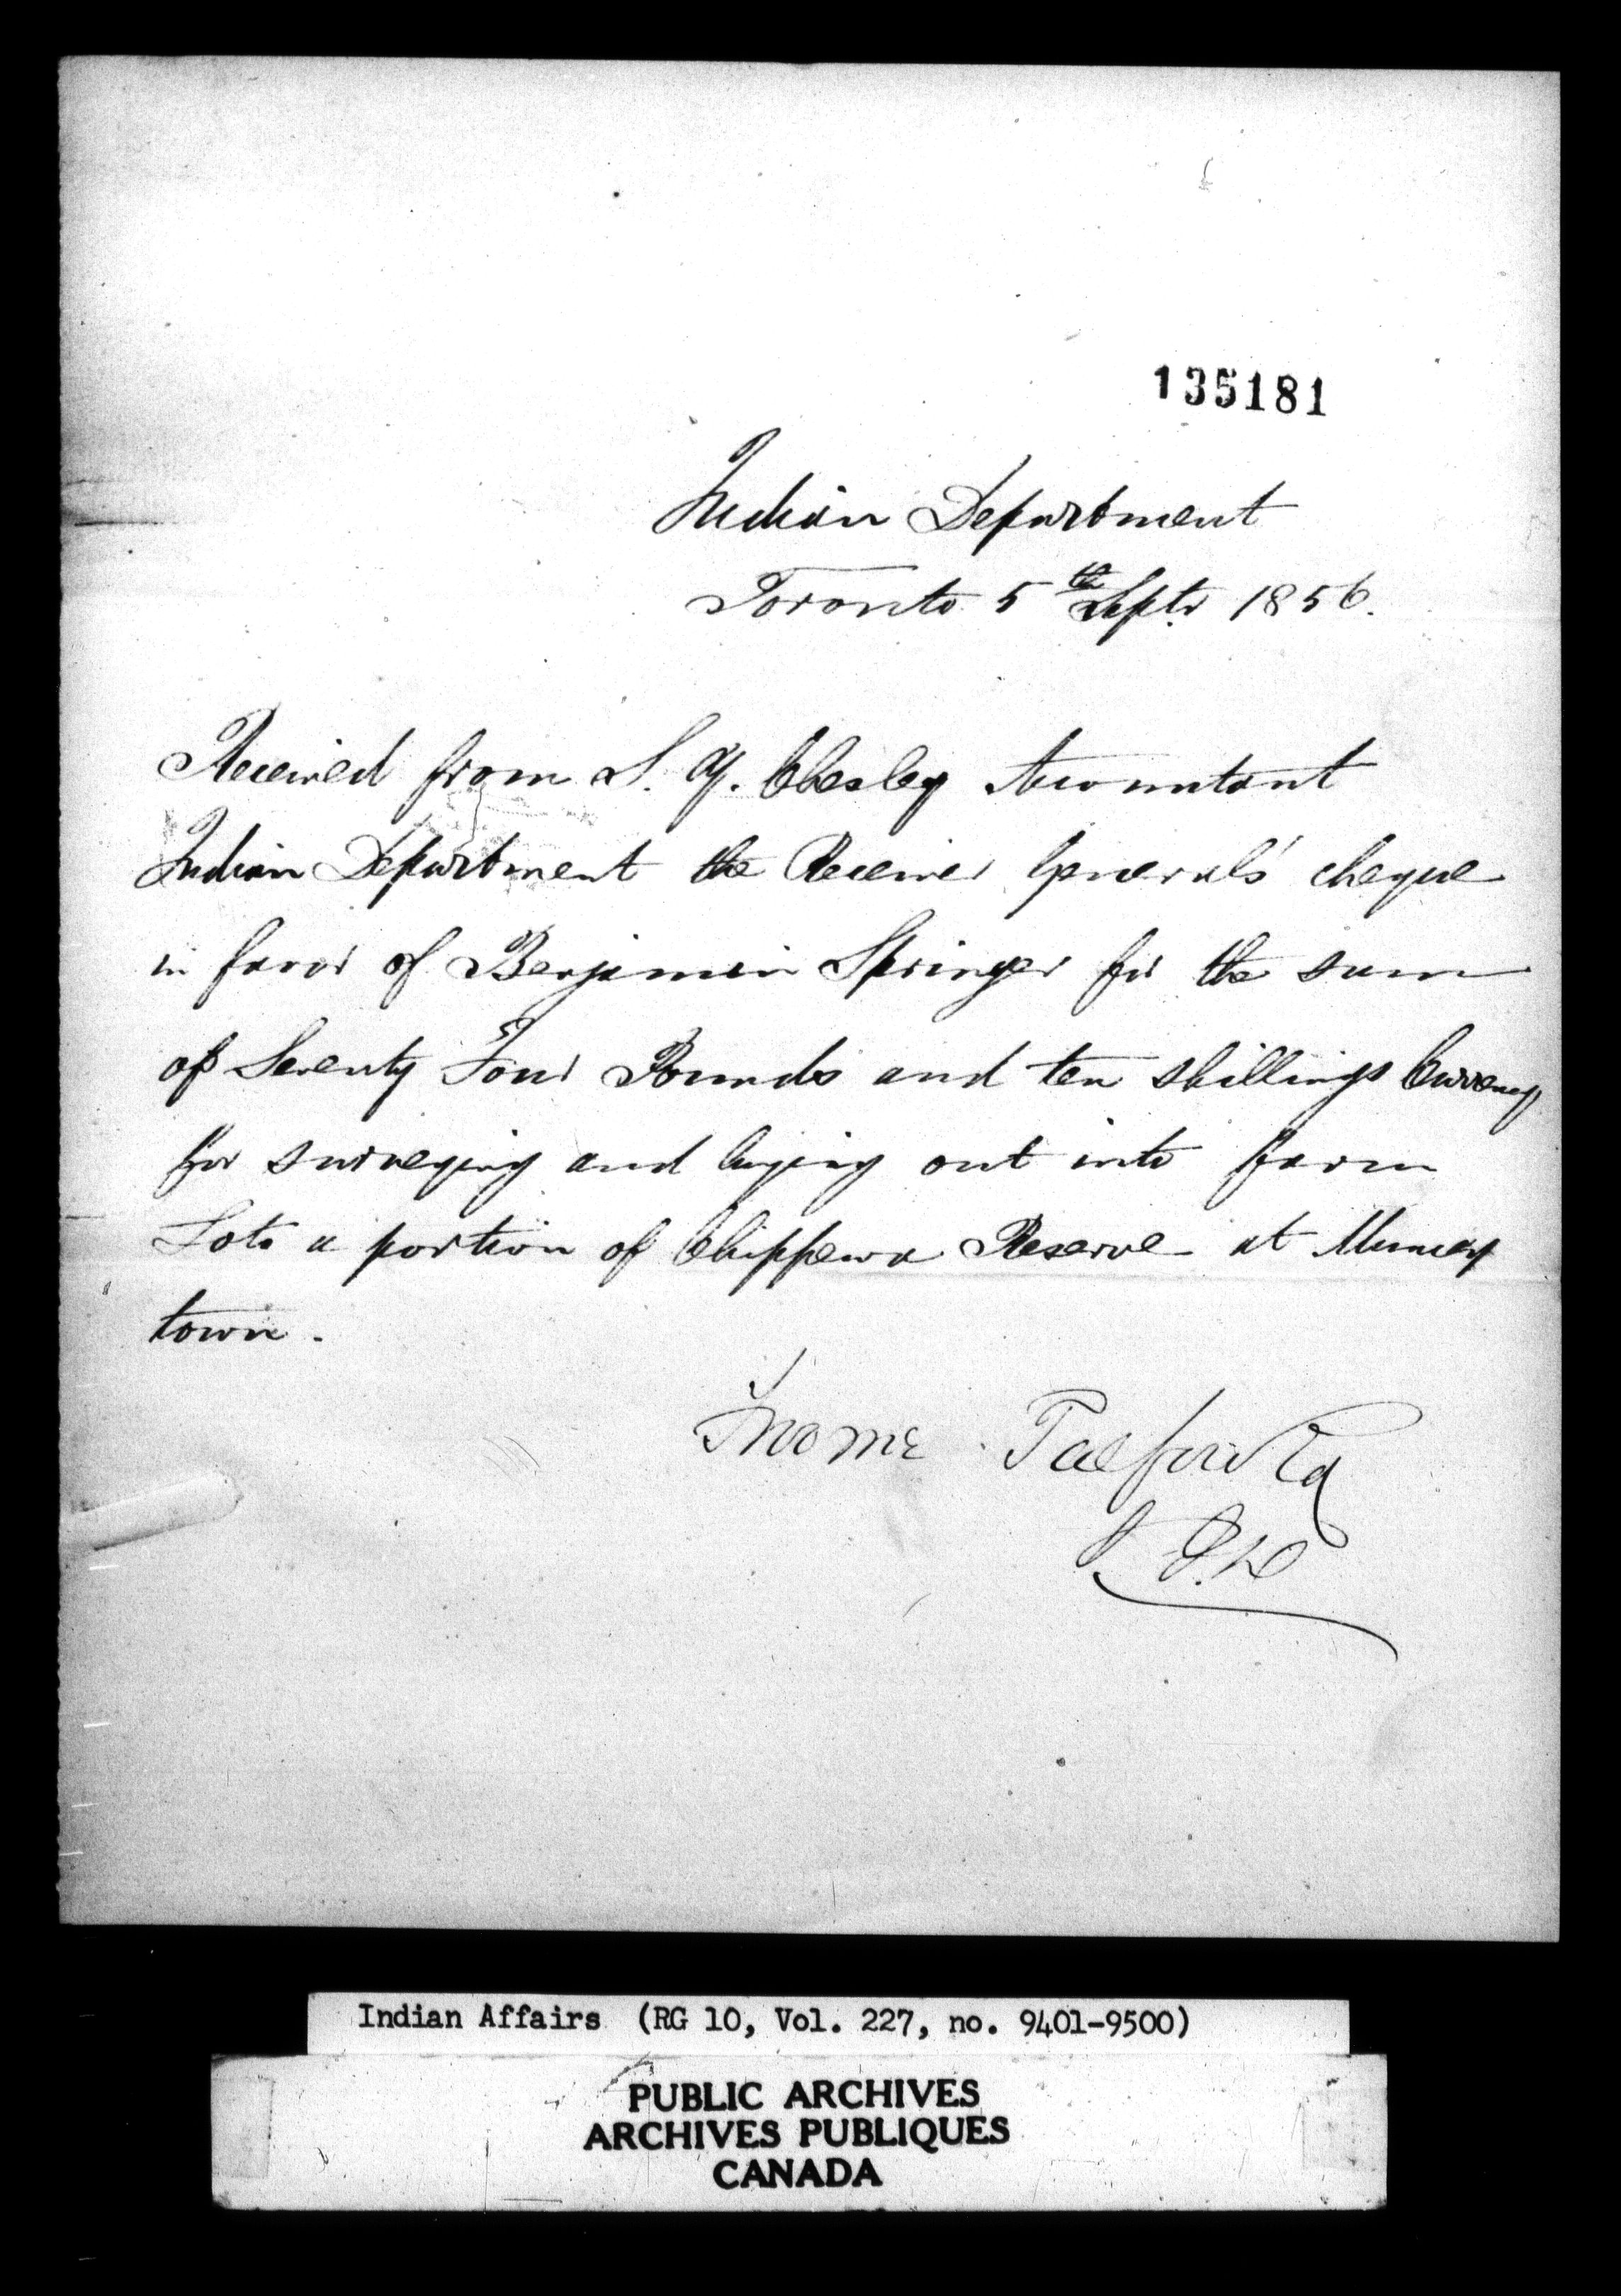 135181
Indian Department
Toronto 5th Septr 1856.
Received from S. Y. Chesley Accountant
Indian Department the Receiver General's cheque
in favor of Benjamin Springer for the sum
of Seventy Four Pounds and ten shillings Currency
for surveying and laying out into farm
Lots a portion of Chippewa Reserve at Muncey
town.
Froome Talfourd
Indian Affairs (RG 10, Vol. 227, no. 9401-9500)
PUBLIC ARCHIVES
ARCHIVES PUBLIQUES
CANADA